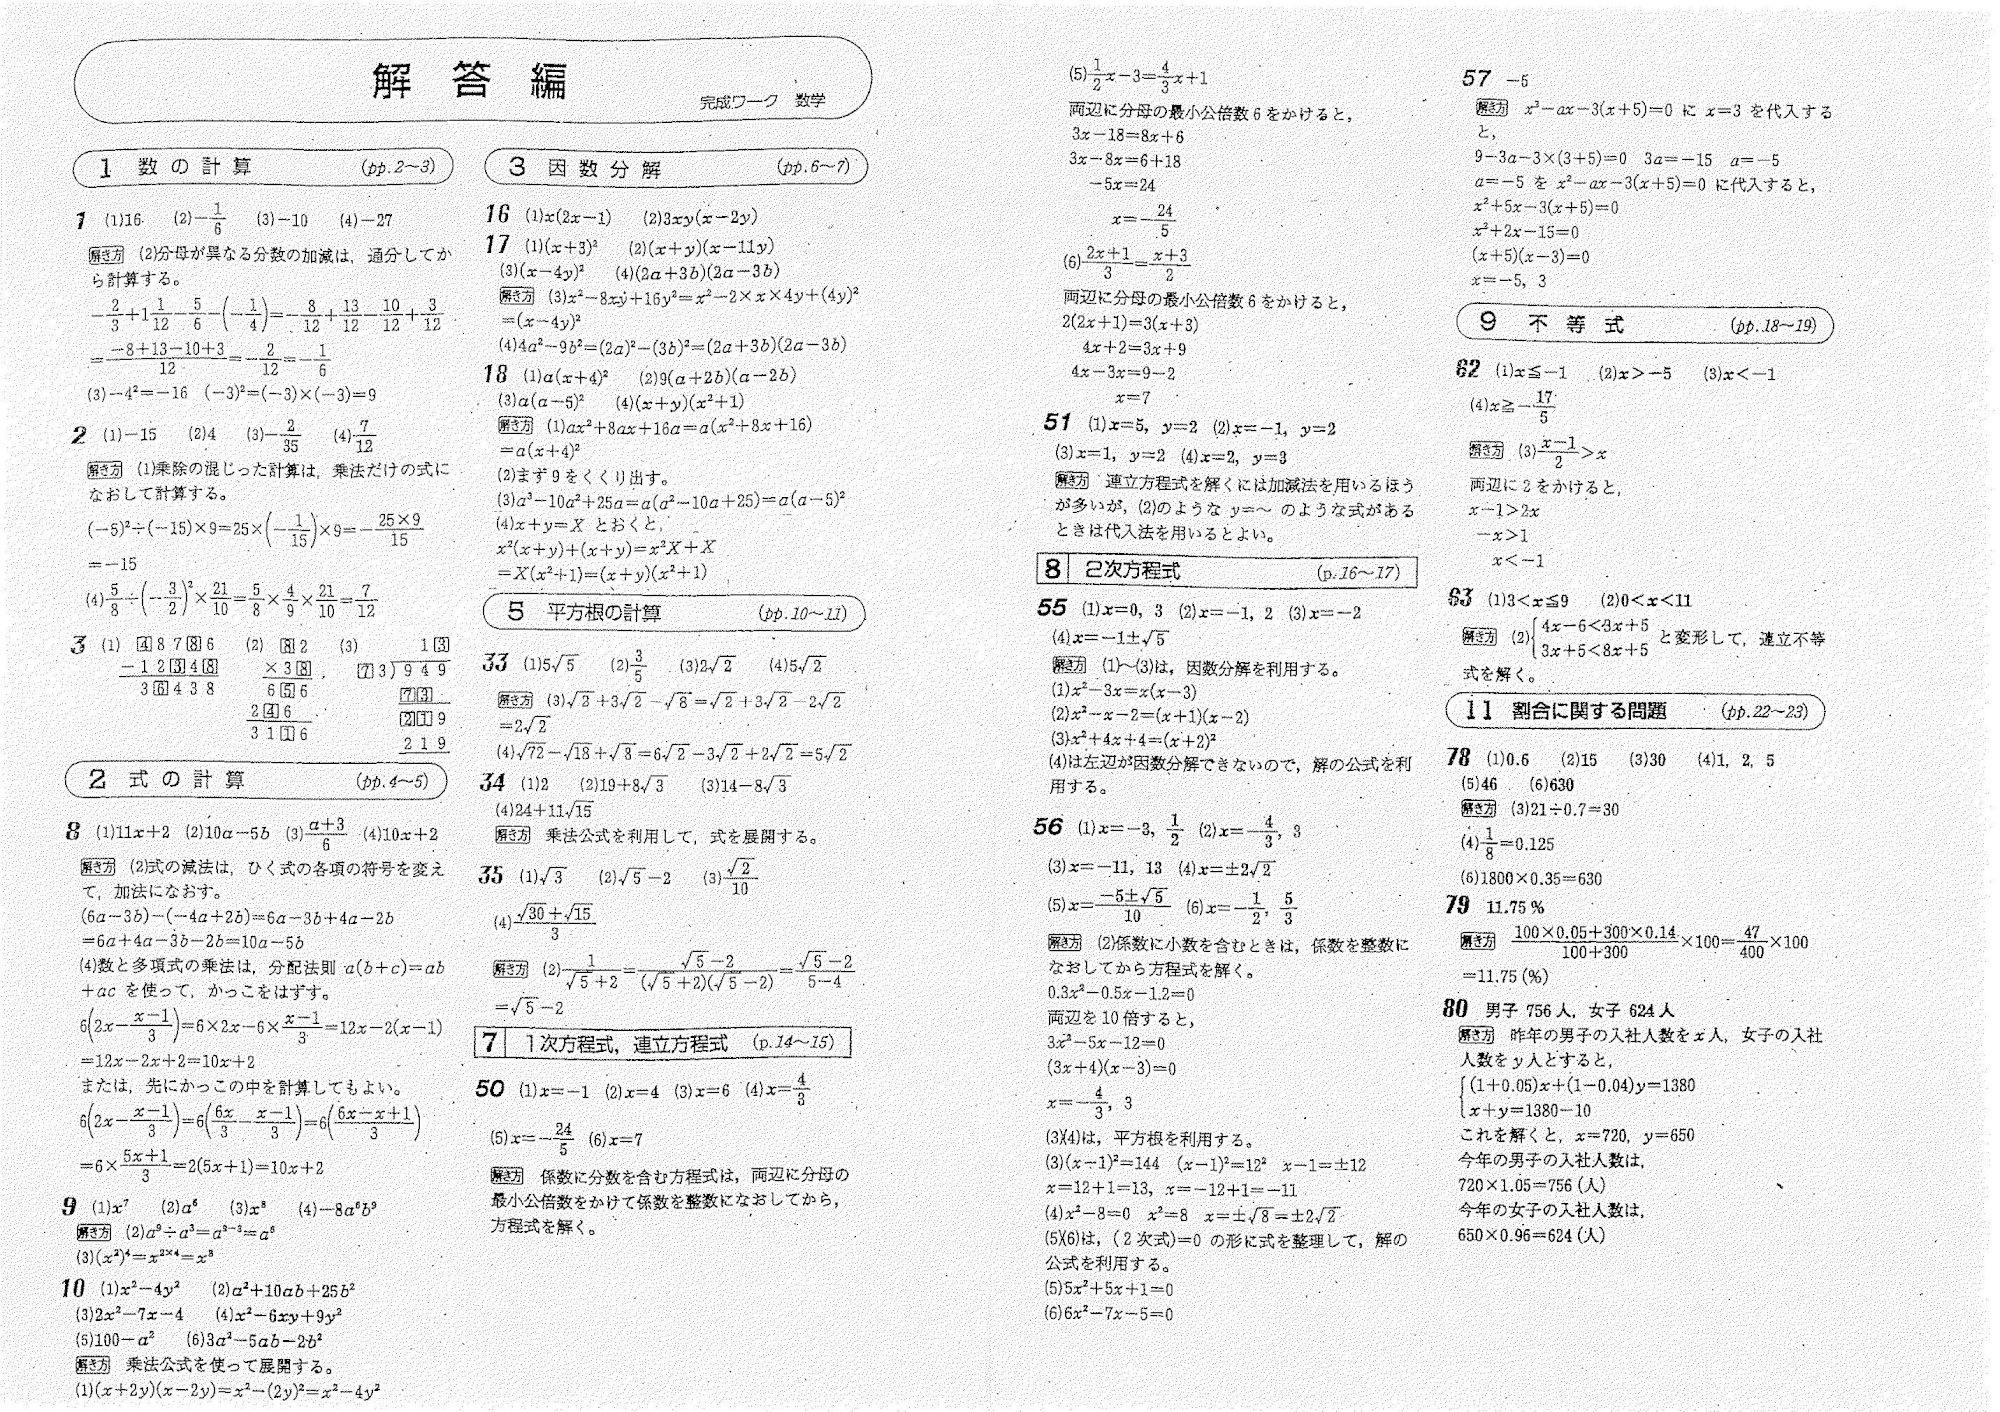 解答編
完成ワーク 数学
1 数の計算 (pp.2~3)
1 (1)16 (2)-1/6 (3)-10 (4)-27
解き方 (2)分母が異なる分数の加減は，通分してか
ら計算する。
-2/3+1 1/12-5/6-(-1/4)=-8/12+13/12-10/12+3/12
=(-8+13-10+3)/12=-2/12=-1/6
(3)-4²=-16 (-3)²=(-3)×(-3)=9
2 (1)-15 (2)4 (3)-2/35 (4)7/12
解き方 (1)乗除の混じった計算は，乗法だけの式に
なおして計算する。
(-5)²÷(-15)×9=25×(-1/15)×9=-(25×9)/15
=-15
(4)5/8÷(-3/2)²×21/10=5/8×4/9×21/10=7/12
3 (1) [4]87[8]6 (2) [8]2 (3) 1[3]
-12[3]4[8] ×3[8] [7]3)949
3[6]438 6[5]6 [7][3]
2[4]6 [2][1]9
31[1]6 219
2 式の計算 (pp.4~5)
8 (1)11x+2 (2)10a-5b (3)(a+3)/6 (4)10x+2
解き方 (2)式の減法は，ひく式の各項の符号を変え
て，加法になおす。
(6a-3b)-(-4a+2b)=6a-3b+4a-2b
=6a+4a-3b-2b=10a-5b
(4)数と多項式の乗法は，分配法則 a(b+c)=ab
+ac を使って，かっこをはずす。
6(2x-(x-1)/3)=6×2x-6×(x-1)/3=12x-2(x-1)
=12x-2x+2=10x+2
または，先にかっこの中を計算してもよい。
6(2x-(x-1)/3)=6(6x/3-(x-1)/3)=6((6x-x+1)/3)
=6×(5x+1)/3=2(5x+1)=10x+2
9 (1)x⁷ (2)a⁶ (3)x⁸ (4)-8a⁶b⁹
解き方 (2)a⁹÷a³=a⁹⁻³=a⁶
(3)(x²)⁴=x²ˣ⁴=x⁸
10 (1)x²-4y² (2)a²+10ab+25b²
(3)2x²-7x-4 (4)x²-6xy+9y²
(5)100-a² (6)3a²-5ab-2b²
解き方 乗法公式を使って展開する。
(1)(x+2y)(x-2y)=x²-(2y)²=x²-4y²
3 因数分解 (pp.6~7)
16 (1)x(2x-1) (2)3xy(x-2y)
17 (1)(x+3)² (2)(x+y)(x-11y)
(3)(x-4y)² (4)(2a+3b)(2a-3b)
解き方 (3)x²-8xy+16y²=x²-2×x×4y+(4y)²
=(x-4y)²
(4)4a²-9b²=(2a)²-(3b)²=(2a+3b)(2a-3b)
18 (1)a(x+4)² (2)9(a+2b)(a-2b)
(3)a(a-5)² (4)(x+y)(x²+1)
解き方 (1)ax²+8ax+16a=a(x²+8x+16)
=a(x+4)²
(2)まず9をくくり出す。
(3)a³-10a²+25a=a(a²-10a+25)=a(a-5)²
(4)x+y=X とおくと，
x²(x+y)+(x+y)=x²X+X
=X(x²+1)=(x+y)(x²+1)
5 平方根の計算 (pp.10~11)
33 (1)5√5 (2)3/5 (3)2√2 (4)5√2
解き方 (3)√2+3√2-√8=√2+3√2-2√2
=2√2
(4)√72-√18+√8=6√2-3√2+2√2=5√2
34 (1)2 (2)19+8√3 (3)14-8√3
(4)24+11√15
解き方 乗法公式を利用して，式を展開する。
35 (1)√3 (2)√5-2 (3)√2/10
(4)(√30+√15)/3
解き方 (2)1/(√5+2)=(√5-2)/((√5+2)(√5-2))=(√5-2)/(5-4)
=√5-2
7 1次方程式，連立方程式 (p.14~15)
50 (1)x=-1 (2)x=4 (3)x=6 (4)x=4/3
(5)x=-24/5 (6)x=7
解き方 係数に分数を含む方程式は，両辺に分母の
最小公倍数をかけて係数を整数になおしてから，
方程式を解く。
(5)1/2x-3=4/3x+1
両辺に分母の最小公倍数6をかけると，
3x-18=8x+6
3x-8x=6+18
-5x=24
x=-24/5
(6)(2x+1)/3=(x+3)/2
両辺に分母の最小公倍数6をかけると，
2(2x+1)=3(x+3)
4x+2=3x+9
4x-3x=9-2
x=7
51 (1)x=5, y=2 (2)x=-1, y=2
(3)x=1, y=2 (4)x=2, y=3
解き方 連立方程式を解くには加減法を用いるほう
が多いが，(2)のような y=~ のような式がある
ときは代入法を用いるとよい。
8 2次方程式 (p.16~17)
55 (1)x=0, 3 (2)x=-1, 2 (3)x=-2
(4)x=-1±√5
解き方 (1)~(3)は，因数分解を利用する。
(1)x²-3x=x(x-3)
(2)x²-x-2=(x+1)(x-2)
(3)x²+4x+4=(x+2)²
(4)は左辺が因数分解できないので，解の公式を利
用する。
56 (1)x=-3, 1/2 (2)x=-4/3, 3
(3)x=-11, 13 (4)x=±2√2
(5)x=(-5±√5)/10 (6)x=-1/2, 5/3
解き方 (2)係数に小数を含むときは，係数を整数に
なおしてから方程式を解く。
0.3x²-0.5x-1.2=0
両辺を10倍すると，
3x²-5x-12=0
(3x+4)(x-3)=0
x=-4/3, 3
(3)(4)は，平方根を利用する。
(3)(x-1)²=144 (x-1)²=12² x-1=±12
x=12+1=13, x=-12+1=-11
(4)x²-8=0 x²=8 x=±√8=±2√2
(5)(6)は，(2次式)=0 の形に式を整理して，解の
公式を利用する。
(5)5x²+5x+1=0
(6)6x²-7x-5=0
57 -5
解き方 x²-ax-3(x+5)=0 に x=3 を代入する
と，
9-3a-3×(3+5)=0 3a=-15 a=-5
a=-5 を x²-ax-3(x+5)=0 に代入すると，
x²+5x-3(x+5)=0
x²+2x-15=0
(x+5)(x-3)=0
x=-5, 3
9 不等式 (pp.18~19)
62 (1)x≦-1 (2)x>-5 (3)x<-1
(4)x≧-17/5
解き方 (3)(x-1)/2>x
両辺に2をかけると，
x-1>2x
-x>1
x<-1
63 (1)3<x≦9 (2)0<x<11
解き方 (2){4x-6<3x+5
3x+5<8x+5 と変形して，連立不等
式を解く。
11 割合に関する問題 (pp.22~23)
78 (1)0.6 (2)15 (3)30 (4)1, 2, 5
(5)46 (6)630
解き方 (3)21÷0.7=30
(4)1/8=0.125
(6)1800×0.35=630
79 11.75%
解き方 (100×0.05+300×0.14)/(100+300)×100=47/400×100
=11.75(%)
80 男子 756人，女子 624人
解き方 昨年の男子の入社人数をx人，女子の入社
人数をy人とすると，
{(1+0.05)x+(1-0.04)y=1380
x+y=1380-10
これを解くと，x=720, y=650
今年の男子の入社人数は，
720×1.05=756(人)
今年の女子の入社人数は，
650×0.96=624(人)